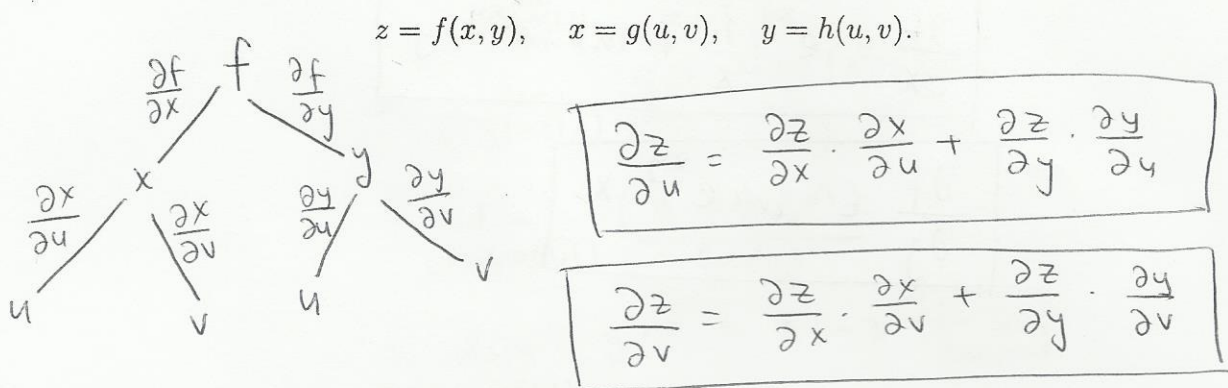 z = f(x, y),   x = g(u, v),   y = h(u, v).
f
∂f/∂x   ∂f/∂y
x   y
∂x/∂u   ∂x/∂v   ∂y/∂u   ∂y/∂v
u   v   u   v
∂z/∂u = ∂z/∂x · ∂x/∂u + ∂z/∂y · ∂y/∂u
∂z/∂v = ∂z/∂x · ∂x/∂v + ∂z/∂y · ∂y/∂v